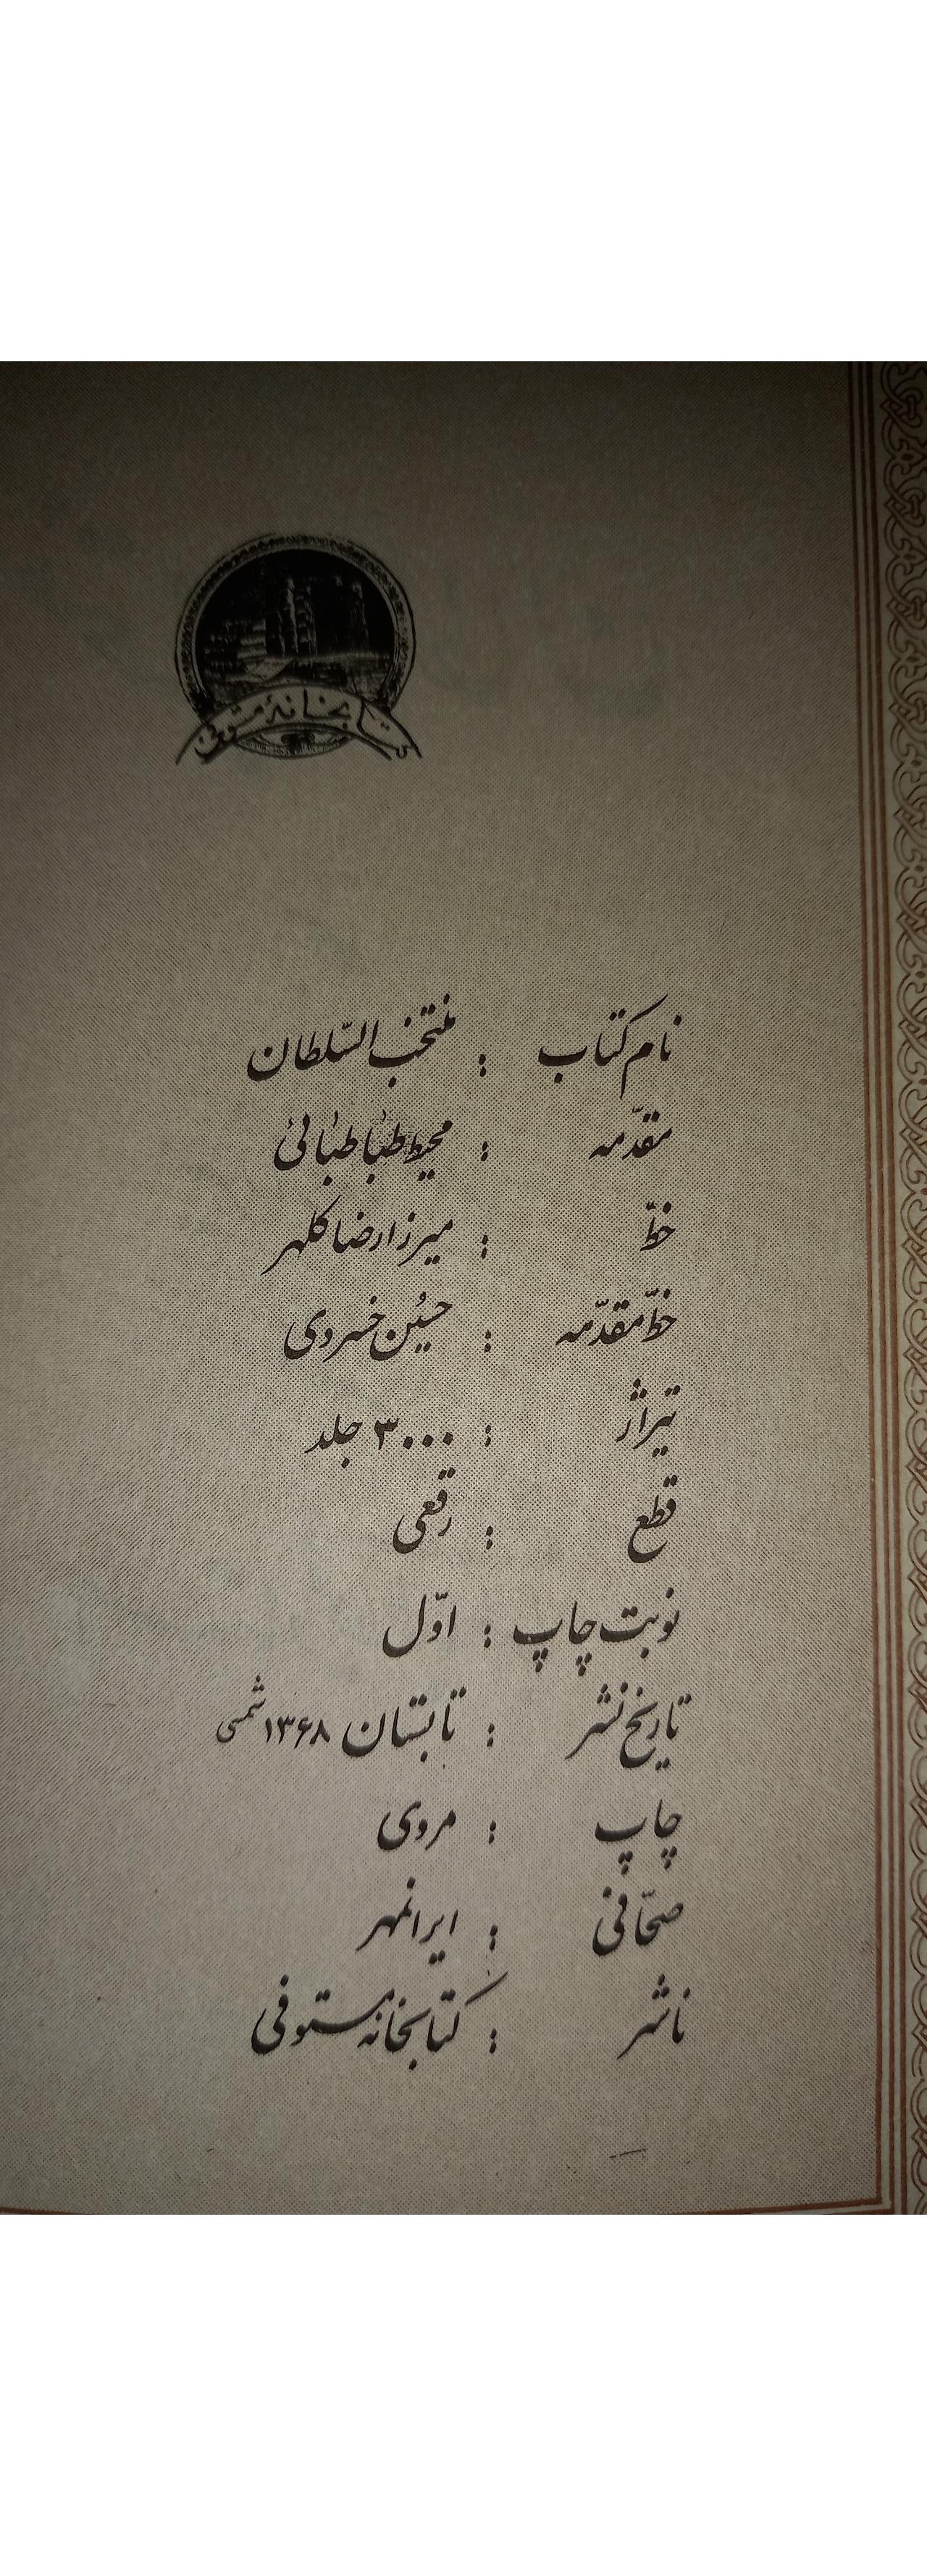 کتابخانهٔ مستوفی
نام کتاب : منتخب السّلطان
مقدّمه : محیط طباطبائی
خطّ : میرزا رضا کلهر
خطّ مقدّمه : حسین خسروی
تیراژ : ۳۰۰۰ جلد
قطع : رقعی
نوبت چاپ : اوّل
تاریخ نشر : تابستان ۱۳۶۸ شمسی
چاپ : مروی
صحّافی : ایرانمهر
ناشر : کتابخانه مستوفی